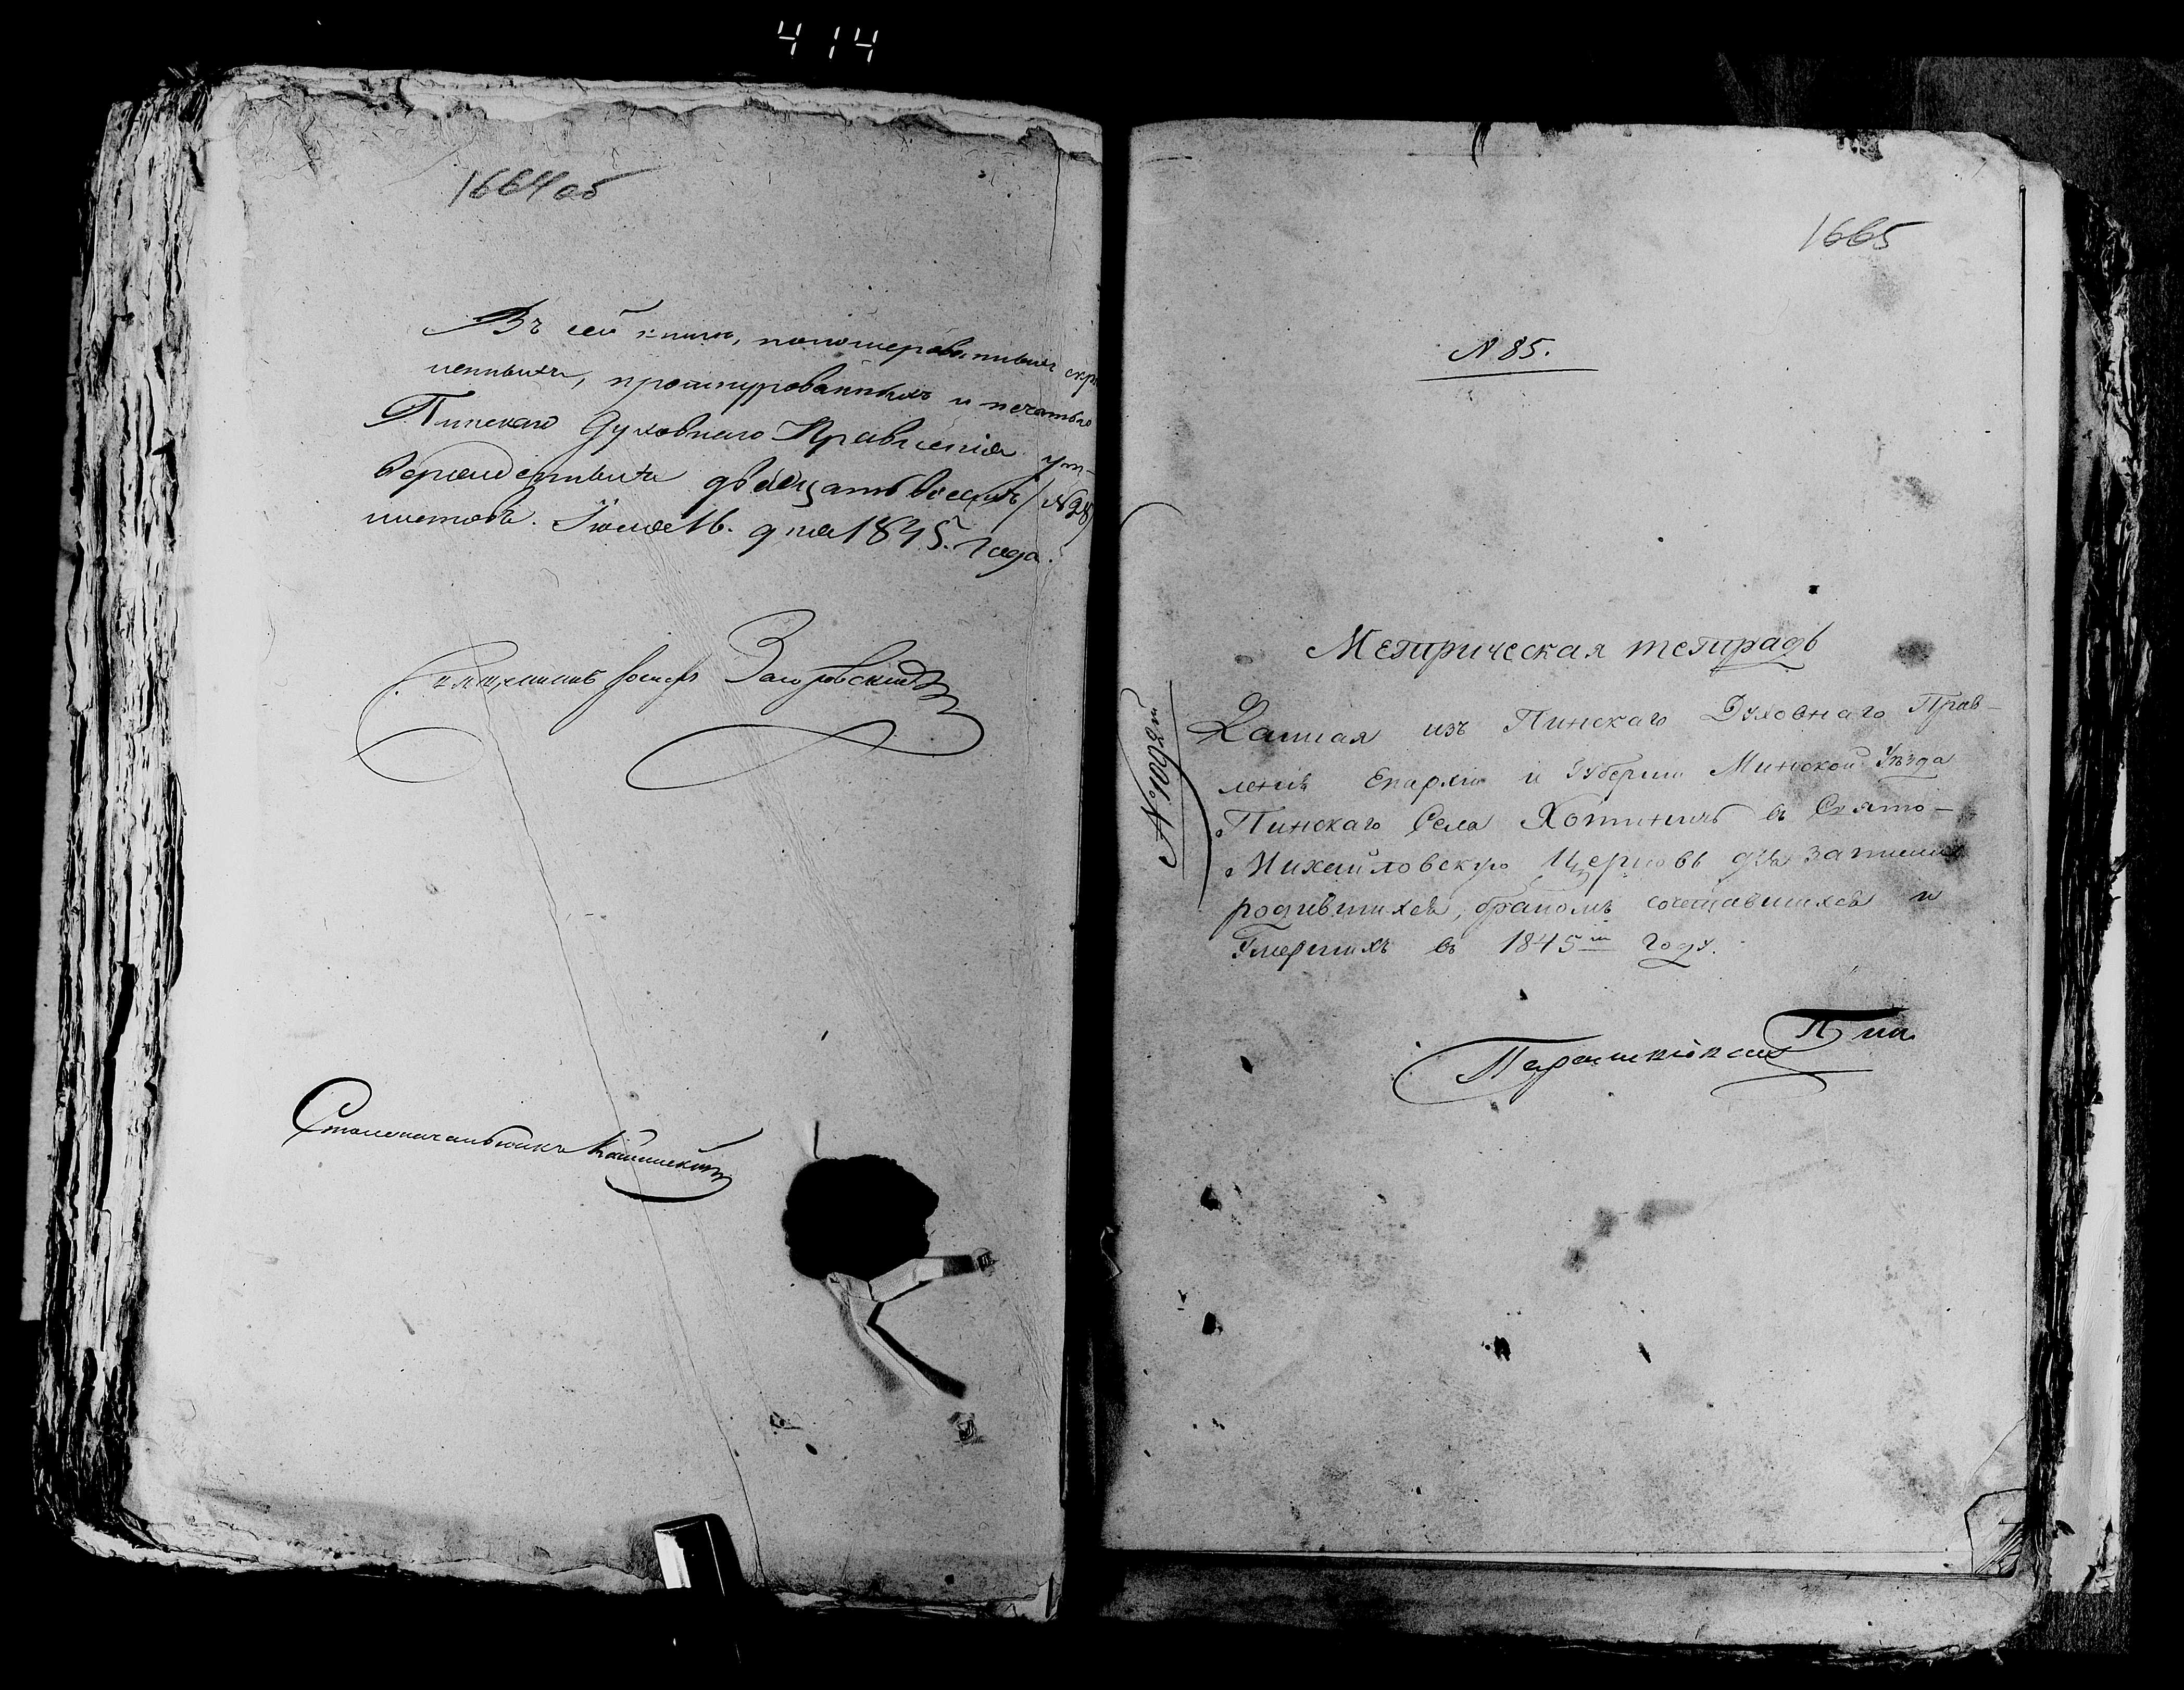 414
1664об
Въ сей книгѣ, пономерованныхъ скрѣ
пленныхъ, прошнурованныхъ и печатью
Пинскаго Духовнаго Правленія ут-
вержденныхъ двадцать восемь /№28/
листовъ. Іюля 16. дня 1845. года.
Священникъ Іосифъ
Столоначальникъ
1665
№ 85.
Метрическая тетрадь
Данная изъ Пинскаго Духовнаго Прав-
ленія Епархіи и Губерніи Минской Уѣзда
Пинскаго Села Хотиничъ въ Свято-
Михайловскую Церковь для записки
родившихся, бракомъ сочетавшихся и
Умершихъ въ 1845 году.